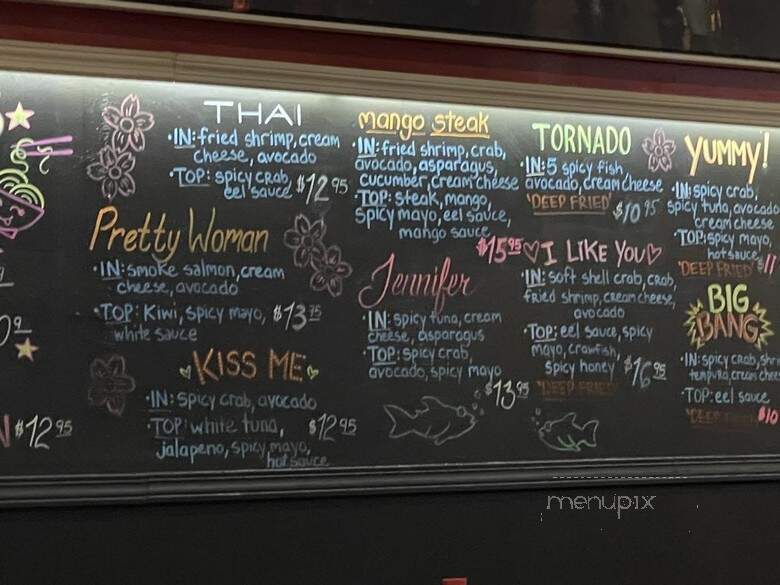 THAI
·IN: fried shrimp, cream
cheese, avocado
·TOP: spicy crab,
eel sauce $12 95
Pretty Woman
·IN: smoke salmon, cream
cheese, avocado
·TOP: Kiwi, spicy mayo, $13
white sauce
KISS ME
·IN: spicy crab, avocado
·TOP: white tuna, $12 95
jalapeno, spicy mayo,
hot sauce
$12 95
mango steak
·IN: fried shrimp, crab,
avocado, asparagus,
cucumber, cream cheese
·TOP: steak, mango,
spicy mayo, eel sauce,
mango sauce
$15 95
Jennifer
·IN: spicy tuna, cream
cheese, asparagus
·TOP: spicy crab,
avocado, spicy mayo
$13 95
TORNADO
·IN: 5 spicy fish,
avocado, cream cheese
'DEEP FRIED' $10 95
♡I LIKE YOU♡
·IN: soft shell crab, crab,
fried shrimp, cream cheese,
avocado
·TOP: eel sauce, spicy
mayo, crawfish,
spicy honey $16 95
'DEEP FRIED'
YUMMY!
·IN: spicy crab,
spicy tuna, avocado
cream cheese
·TOP: spicy mayo,
hot sauce
'DEEP FRIED' $11
BIG
BANG
·IN: spicy crab,
tempura, cream
·TOP: eel sauce
'DEEP FRIED' $10
menupix